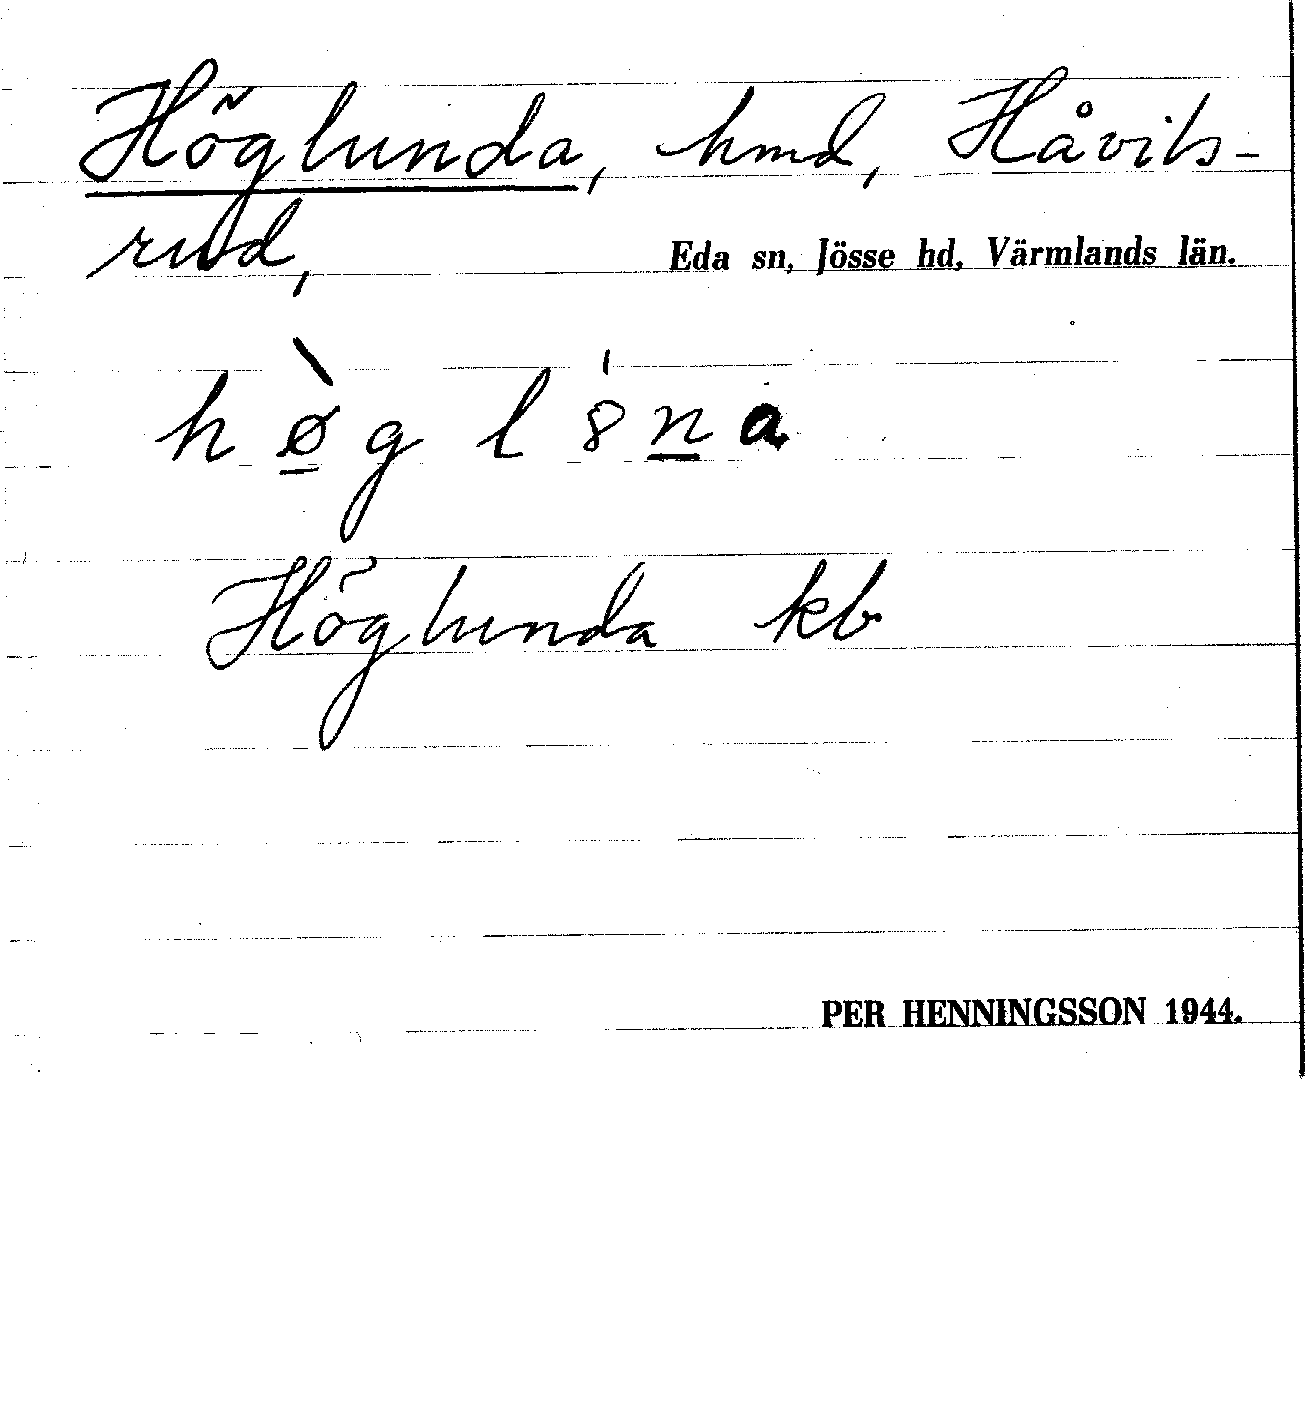 Höglunda, hmd, Håvils-
rud,
Eda sn, Jösse hd, Värmlands län.
hø̠̀g l8́n̠a
Höglunda kb
PER HENNINGSSON 1944.